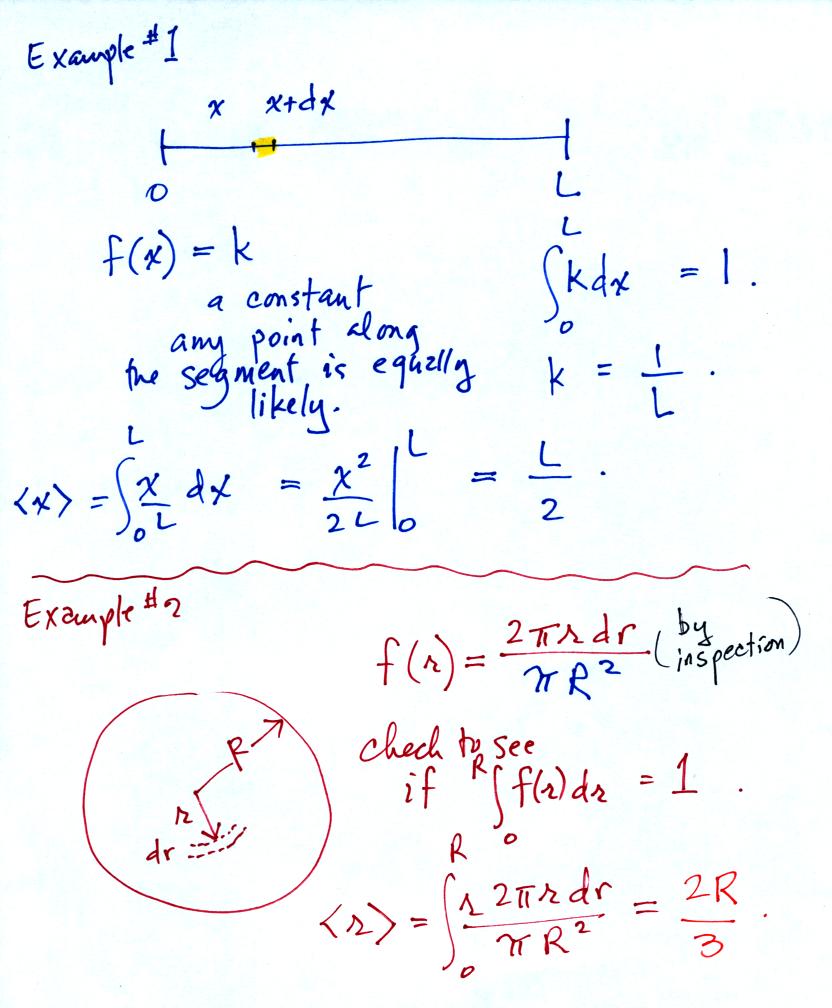 Example #1
x x+dx
0 L
f(x) = k
a constant
any point along
the segment is equally
likely.
∫₀ᴸ k dx = 1.
k = 1/L.
<x> = ∫₀ᴸ x/L dx = x²/2L |₀ᴸ = L/2.
Example #2
f(r) = 2πr dr / πR² (by inspection)
R
r
dr
check to see
if ∫₀ᴿ f(r) dr = 1.
<r> = ∫₀ᴿ r 2πr dr / πR² = 2R/3.